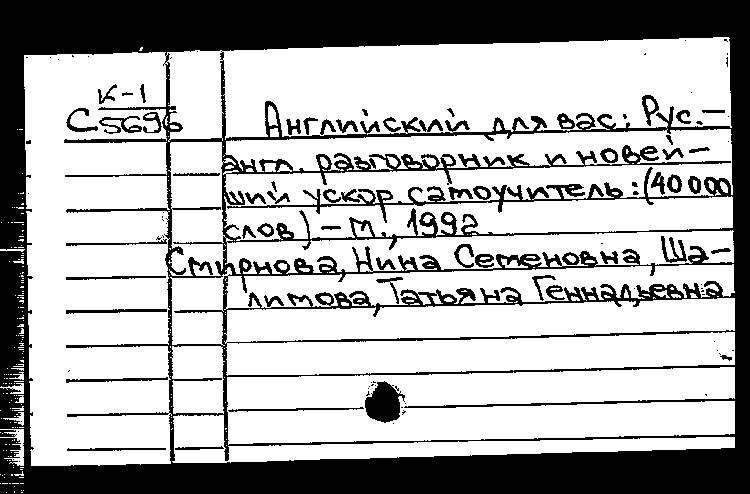 К-1
С 5696
Английский для вас: Рус.-
англ. разговорник и новей-
ший ускор. самоучитель: (40 000
слов) - М., 1992.
Смирнова, Нина Семеновна, Ша-
лимова, Татьяна Геннадьевна.